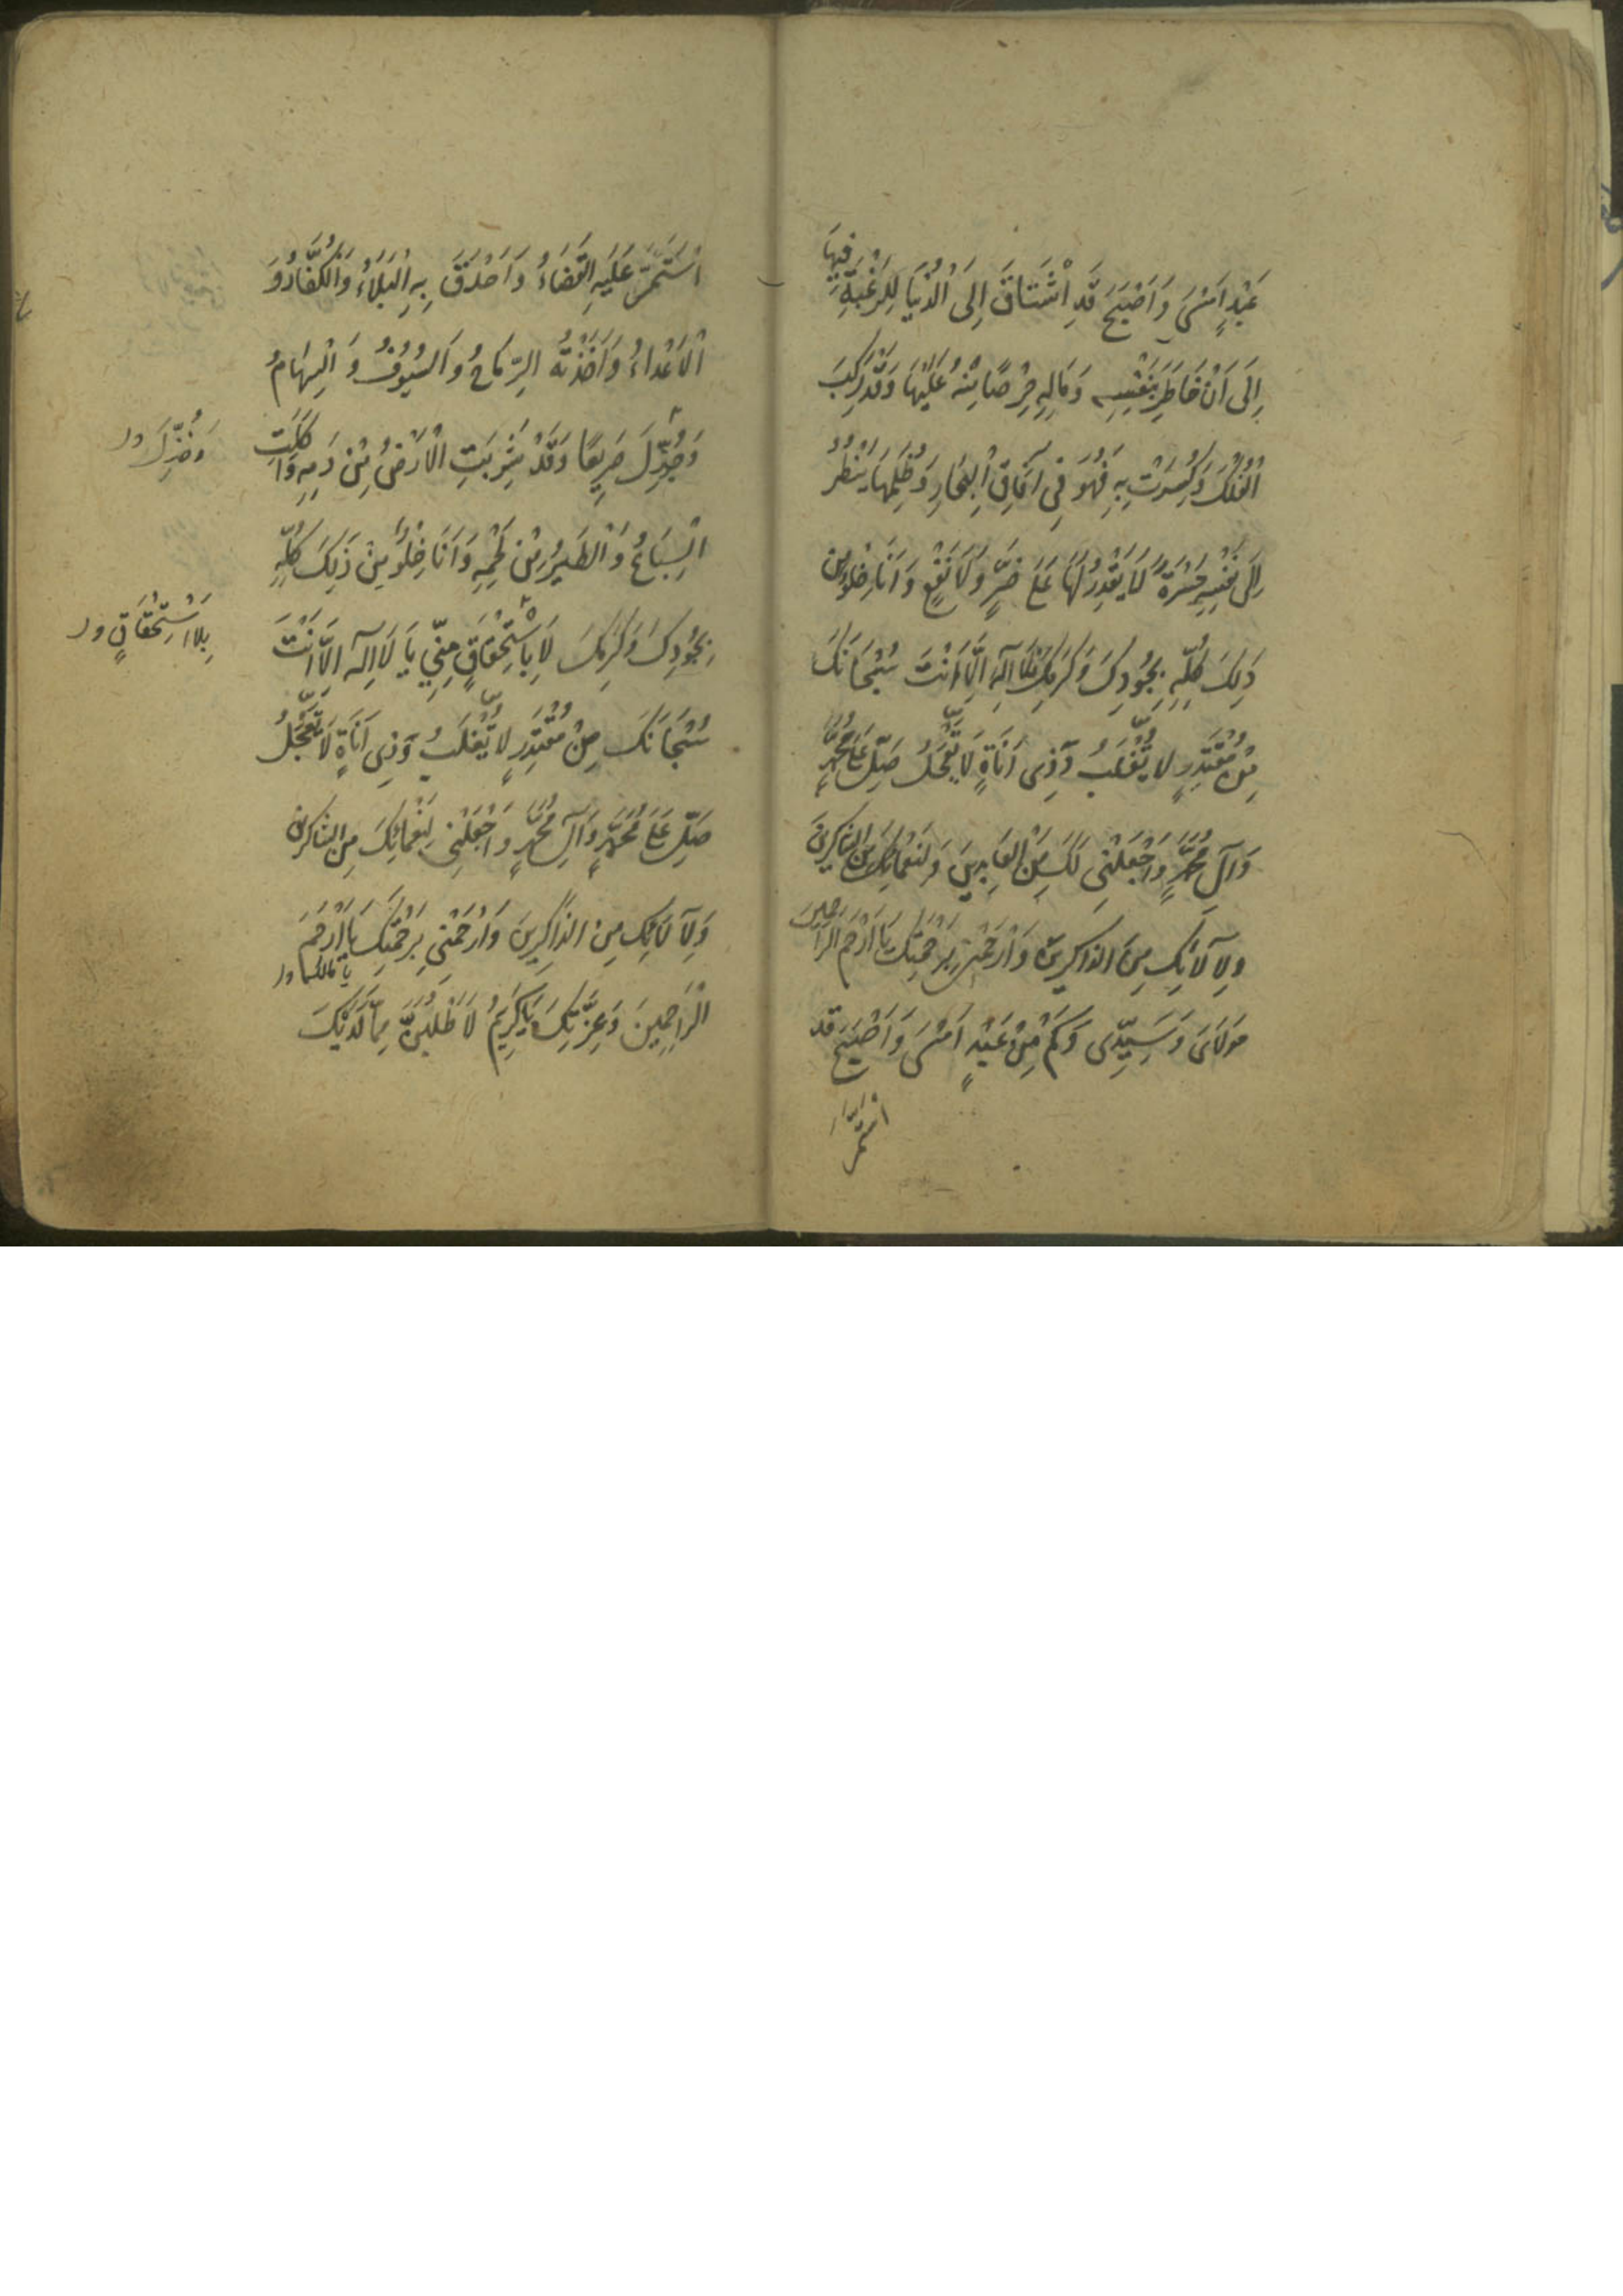 عَبْدٍ اَمْسٰى وَ اَصْبَحَ قَدِ اشْتَاقَ اِلَى الدُّنْيَا لِلرَّغْبَةِ فِيهَا
اِلَى اَنْ خَاطَرَ بِنَفْسِهِ وَ مَالِهِ حِرْصًا مِنْهُ عَلَيْهَا وَ قَدْ رَكِبَ
الْفُلْكَ وَ كُسِرَتْ بِهِ فَهُوَ فِى اٰفَاقِ الْبِحَارِ وَ ظُلَمِهَا يَنْظُرُ
اِلٰى نَفْسِهِ حَسْرَةً لَا يَقْدِرُ لَهَا عَلٰى ضَرٍّ وَ لَا نَفْعٍ وَ اَنَا خِلْوٌ مِنْ
ذٰلِكَ كُلِّهِ بِجُودِكَ وَ كَرَمِكَ فَلَا اِلٰهَ اِلَّا اَنْتَ سُبْحَانَكَ
مِنْ مُقْتَدِرٍ لَا يُغْلَبُ وَ ذِى اَنَاةٍ لَا يَعْجَلُ صَلِّ عَلٰى مُحَمَّدٍ
وَ آلِ مُحَمَّدٍ وَ اجْعَلْنِى لَكَ مِنَ الْعَابِدِينَ وَ لِنَعْمَائِكَ مِنَ الشَّاكِرِينَ
وَ لِآلَائِكَ مِنَ الذَّاكِرِينَ وَ ارْحَمْنِى بِرَحْمَتِكَ يَا اَرْحَمَ الرَّاحِمِينَ
مَوْلَاىَ وَ سَيِّدِى وَ كَمْ مِنْ عَبْدٍ اَمْسٰى وَ اَصْبَحَ قَد
اسْتَمَرَّ
اسْتَمَرَّ عَلَيْهِ الْقَضَاءُ وَ اَحْدَقَ بِهِ الْبَلَاءُ وَ الْكُفَّارُ وَ
الْاَعْدَاءُ وَ اَخَذَتْهُ الرِّمَاحُ وَ السُّيُوفُ وَ السِّهَامُ
وَ جُدِّلَ صَرِيعًا وَ قَدْ شَرِبَتِ الْاَرْضُ مِنْ دَمِهِ وَ اَكَلَتِ
السِّبَاعُ وَ الطَّيْرُ مِنْ لَحْمِهِ وَ اَنَا خِلْوٌ مِنْ ذٰلِكَ كُلِّهِ
بِجُودِكَ وَ كَرَمِكَ لَا بِاسْتِحْقَاقٍ مِنِّي يَا لَا اِلٰهَ اِلَّا اَنْتَ
بِلَا اسْتِحْقَاقٍ
سُبْحَانَكَ مِنْ مُقْتَدِرٍ لَا يُغْلَبُ وَ ذِى اَنَاةٍ لَا يَعْجَلُ
صَلِّ عَلٰى مُحَمَّدٍ وَ آلِ مُحَمَّدٍ وَ اجْعَلْنِى لِنَعْمَائِكَ مِنَ الشَّاكِرِينَ
وَ لِآلَائِكَ مِنَ الذَّاكِرِينَ وَ ارْحَمْنِى بِرَحْمَتِكَ يَا اَرْحَمَ
الرَّاحِمِينَ وَ عِزَّتِكَ يَا كَرِيمُ لَاَطْلُبَنَّ مِمَّا لَدَيْكَ